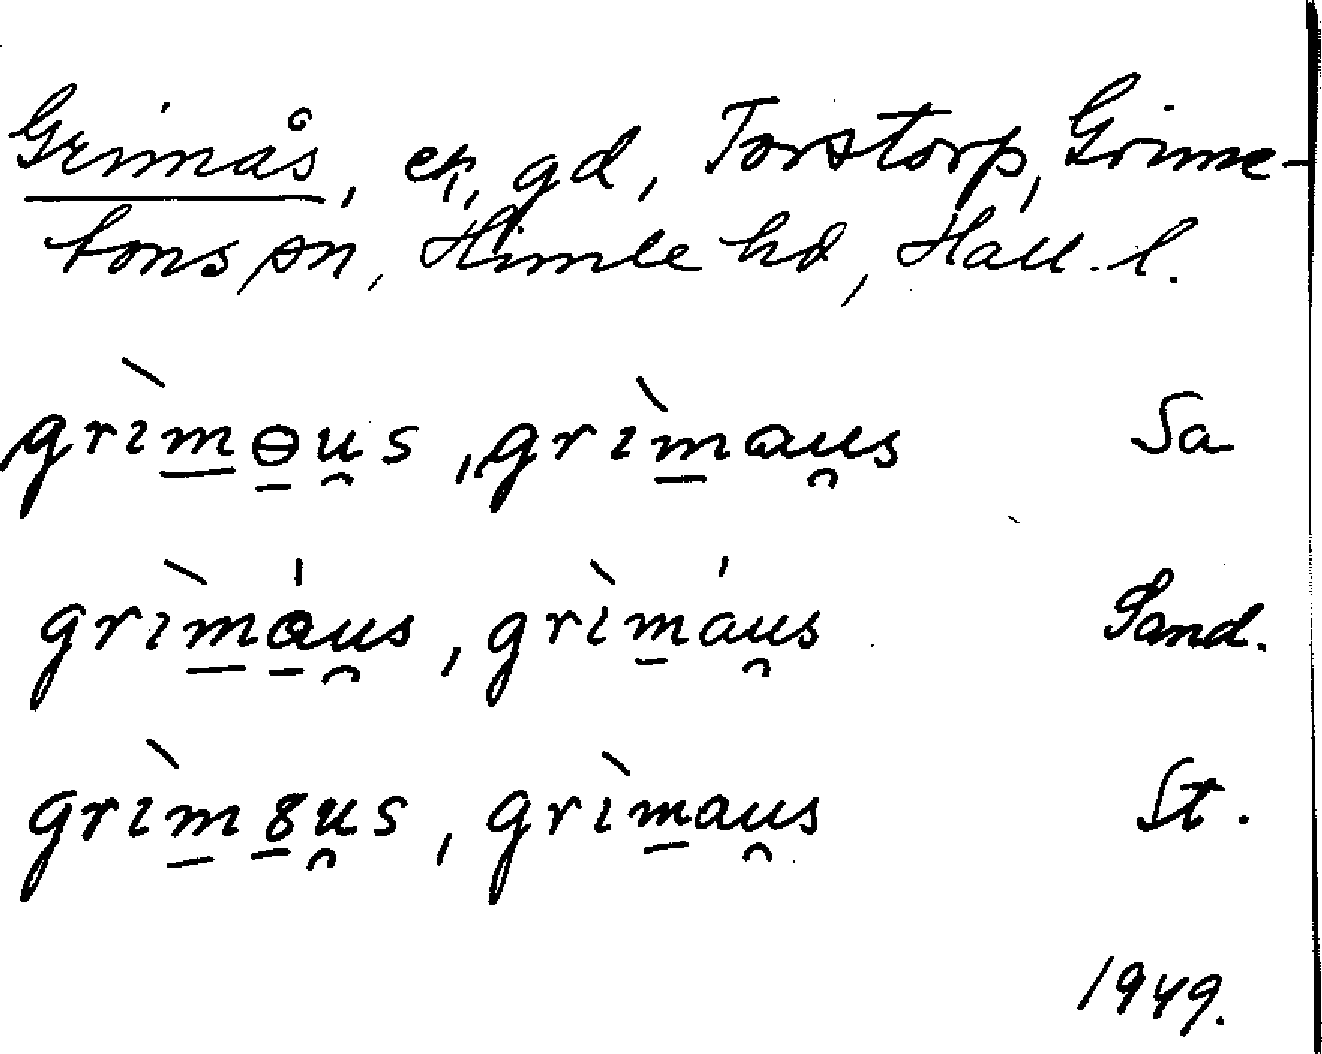 Grimås, en gd, Torstorp, Grime-
tons sn, Himle hd, Hall. l.
grìmɵ̠u̯s, grìmau̯s Sa
grìmá̠u̯s, grìmáu̯s Sand.
grìm8̠u̯s, grìmau̯s St.
1949.